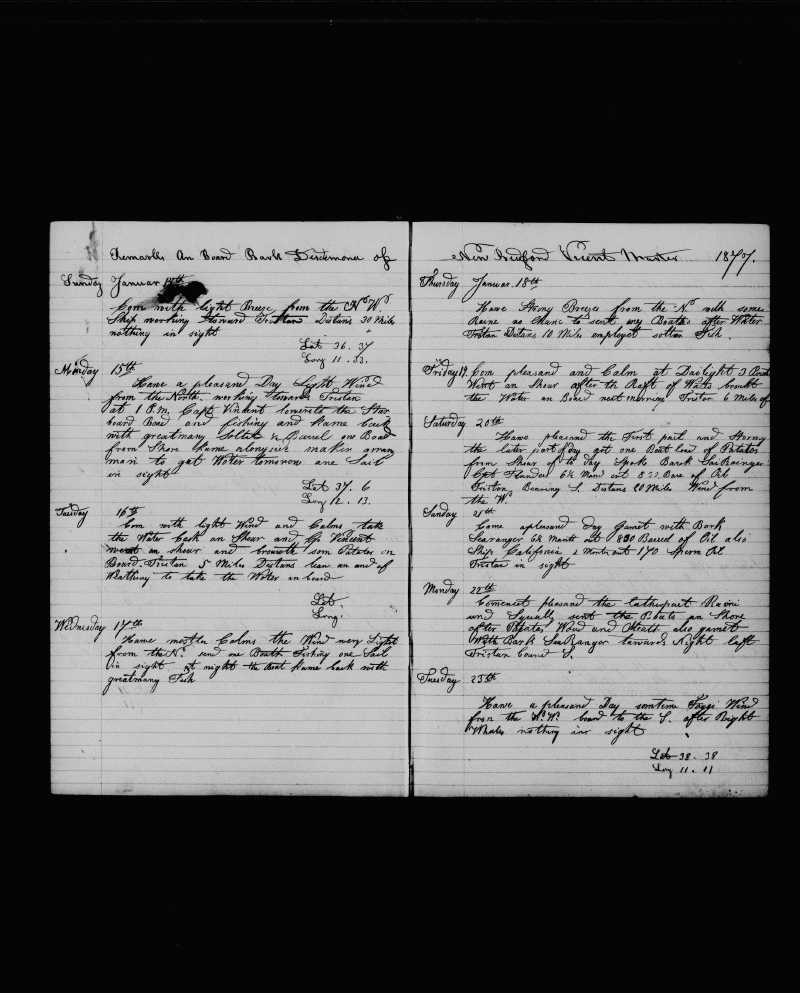 Remarks An Board Bark Desdemona of
Sunday Januar 14th
Com with light Breeze from the N W.
Ship working toward Tristan Distans 30 Miles
nothing in sight
Lat 36. 37
Long 11. 33.
Monday 15th
Have a pleasand Day Light Wind
from the North. working towards Tristan
at 1 P.M. Capt Vincent lowerete the Star
board Boad and fishing and Kame back
with greatmany Soltet & Barrel ow Boad
from Shore Kame alongside maken arran
man to gat Water tomorow one Sail
in sight
Lat 37. 6
Long 12. 13.
Tuesday 16th
Com with light Wind and Calms take
the Water Cask an Shear and Vincent
went an shear and som Potates in
Board. Tristan 5 Miles Distans
to take the Water in board
Lat
Long.
Wednesday 17th
Have Calms the Wind wery Light
from the N. send one Boath Fishing one Sail
in sight at night the Boat Kame back with
greatmany Fish
New Bedford Vicent Master 1877.
Thursday Januar. 18th
Have Strong Breeze from the N. with some
Raine no Chanc to sent any Boaths after Water
Tristan Distans 10 Miles employet Fish
Friday 19. Com pleasand and Calm at Daylight 3 Boat
Went an Shear after the Raft of Water brought
the Water an Board next morning Tristan 6 Miles of
Saturday 20th
Have pleasand the First part and Strong
the later part of day got one Boat load of Potatos
from Shear of to day Spoke Bark SeaRanger
Cpt Flanders 6½ Mand out 8 Bare of Oil
Tristan Bearing S. Distans 80 Miles Wind from
the W.
Sunday 21th
Came apleasand Day Gamet with Bark
Searanger 6½ Monts out 800 Barrel of Oil also
Ship California 2 Monts out 170 Sperm Oil
Tristan in sight
Monday 22th
Comencet pleasand the latherpart Raini
und Squaly sent the Boats an Shore
after Photates Wood and also gamet
With Bark SeaRanger towards Night left
Tristan Course S.
Tuesday 23th
Have a pleasand Day somtime Foggi Wind
fron the W. W. bound to the S. after Right
Whales nothing in sight
Lat 38. 38
Long 11. 11